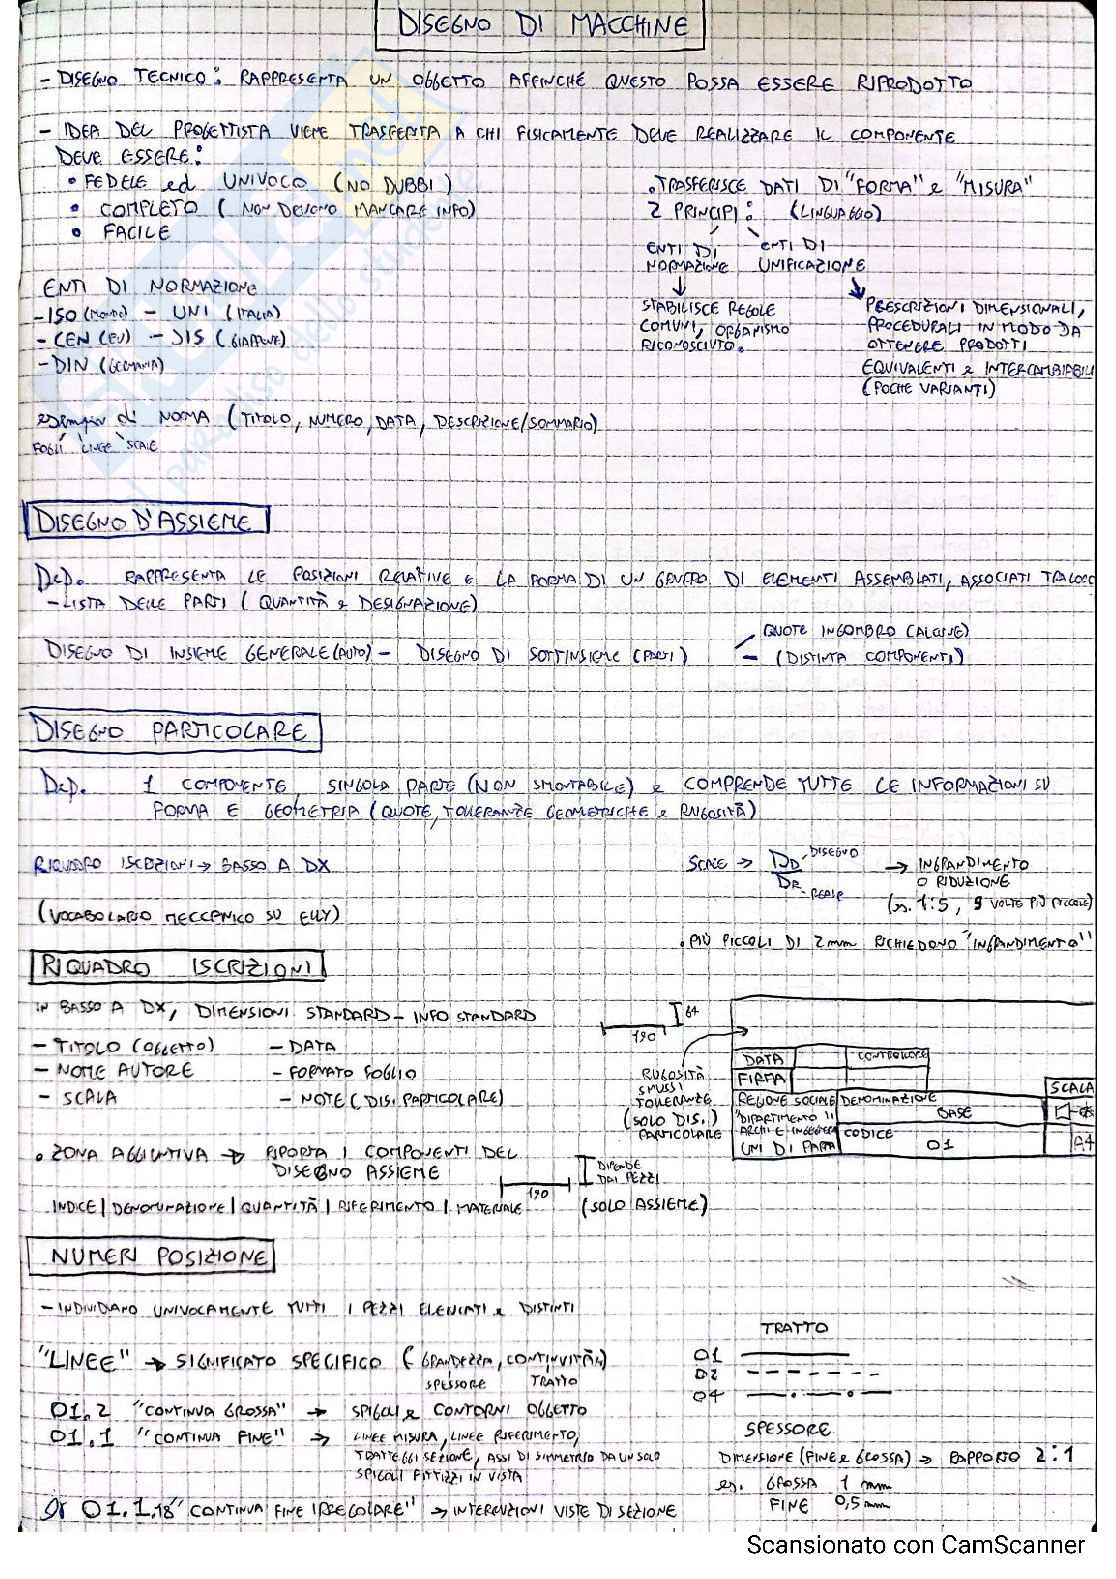 DISEGNO DI MACCHINE
- DISEGNO TECNICO: RAPPRESENTA UN OGGETTO AFFINCHÉ QUESTO POSSA ESSERE RIPRODOTTO
- IDEA DEL PROGETTISTA VIENE TRASFERITA A CHI FISICAMENTE DEVE REALIZZARE IL COMPONENTE
DEVE ESSERE:
• FEDELE ed UNIVOCO (NO DUBBI)
• COMPLETO (NON DEVONO MANCARE INFO)
• FACILE
. TRASFERISCE DATI DI "FORMA" e "MISURA"
2 PRINCIPI: (LINGUAGGIO)
ENTI DI NORMAZIONE
ENTI DI UNIFICAZIONE
STABILISCE REGOLE
COMUNI, ORGANISMO
RICONOSCIUTO.
PRESCRIZIONI DIMENSIONALI,
PROCEDURALI IN MODO DA
OTTENERE PRODOTTI
EQUIVALENTI e INTERCAMBIABILI
(POCHE VARIANTI)
ENTI DI NORMAZIONE
- ISO (MONDO) - UNI (ITALIA)
- CEN (EU) - JIS (GIAPPONE)
- DIN (GERMANIA)
esempio di NORMA (TITOLO, NUMERO, DATA, DESCRIZIONE/SOMMARIO)
FOGLI LINEE SCALE
DISEGNO D'ASSIEME
Def. RAPPRESENTA LE POSIZIONI RELATIVE E LA FORMA DI UN GRUPPO DI ELEMENTI ASSEMBLATI, ASSOCIATI TRA LORO
- LISTA DELLE PARTI (QUANTITÀ e DESIGNAZIONE)
DISEGNO DI INSIEME GENERALE (AUTO) - DISEGNO DI SOTTINSIEME (PARTI)
QUOTE INGOMBRO (ALCUNE)
- (DISTINTA COMPONENTI)
DISEGNO PARTICOLARE
Def. 1 COMPONENTE, SINGOLA PARTE (NON SMONTABILE) e COMPRENDE TUTTE LE INFORMAZIONI SU
FORMA E GEOMETRIA (QUOTE, TOLLERANZE GEOMETRICHE e RUGOSITÀ)
RIQUADRO ISCRIZIONI → BASSO A DX
(VOCABOLARIO MECCANICO SU ELLY)
SCALE → DD DISEGNO
DR REALE
→ INGRANDIMENTO
O RIDUZIONE
(es. 1:5, 5 VOLTE PIÙ PICCOLE)
. PIÙ PICCOLI DI 2mm RICHIEDONO "INGRANDIMENTO"
RIQUADRO ISCRIZIONI
IN BASSO A DX, DIMENSIONI STANDARD - INFO STANDARD
- TITOLO (OGGETTO) - DATA
- NOME AUTORE - FORMATO FOGLIO
- SCALA - NOTE (DIS. PARTICOLARE)
190
64
RUGOSITÀ
SMUSSI
TOLLERANZE
(SOLO DIS.)
PARTICOLARE
DATA CONTROLLORE
FIRMA
SCALA
REGIONE SOCIALE DENOMINAZIONE
BASE
"DIPARTIMENTO
ARCHI E INGEGNERIA
UNI DI PARMA
CODICE
01
A4
• ZONA AGGIUNTIVA → RIPORTA I COMPONENTI DEL
DISEGNO ASSIEME
190
DIPENDE
DAI PEZZI
INDICE | DENOMINAZIONE | QUANTITÀ | RIFERIMENTO | MATERIALE (SOLO ASSIEME)
NUMERI POSIZIONE
- INDIVIDUANO UNIVOCAMENTE TUTTI I PEZZI ELENCATI e DISTINTI
"LINEE" → SIGNIFICATO SPECIFICO (GRANDEZZA, CONTINUITÀ)
SPESSORE TRATTO
01.2 "CONTINUA GROSSA" → SPIGOLI e CONTORNI OGGETTO
01.1 "CONTINUA FINE" → LINEE MISURA, LINEE RIFERIMENTO,
TRATTEGGI SEZIONE, ASSI DI SIMMETRIA DA UN SOLO
SPIGOLI FITTIZI IN VISTA
01.1.18 "CONTINUA FINE IRREGOLARE" → INTERRUZIONI VISTE DI SEZIONE
TRATTO
01
02
04
SPESSORE
DIMENSIONE (FINE e GROSSA) → RAPPORTO 2:1
es. GROSSA 1 mm
FINE 0,5 mm
Scansionato con CamScanner